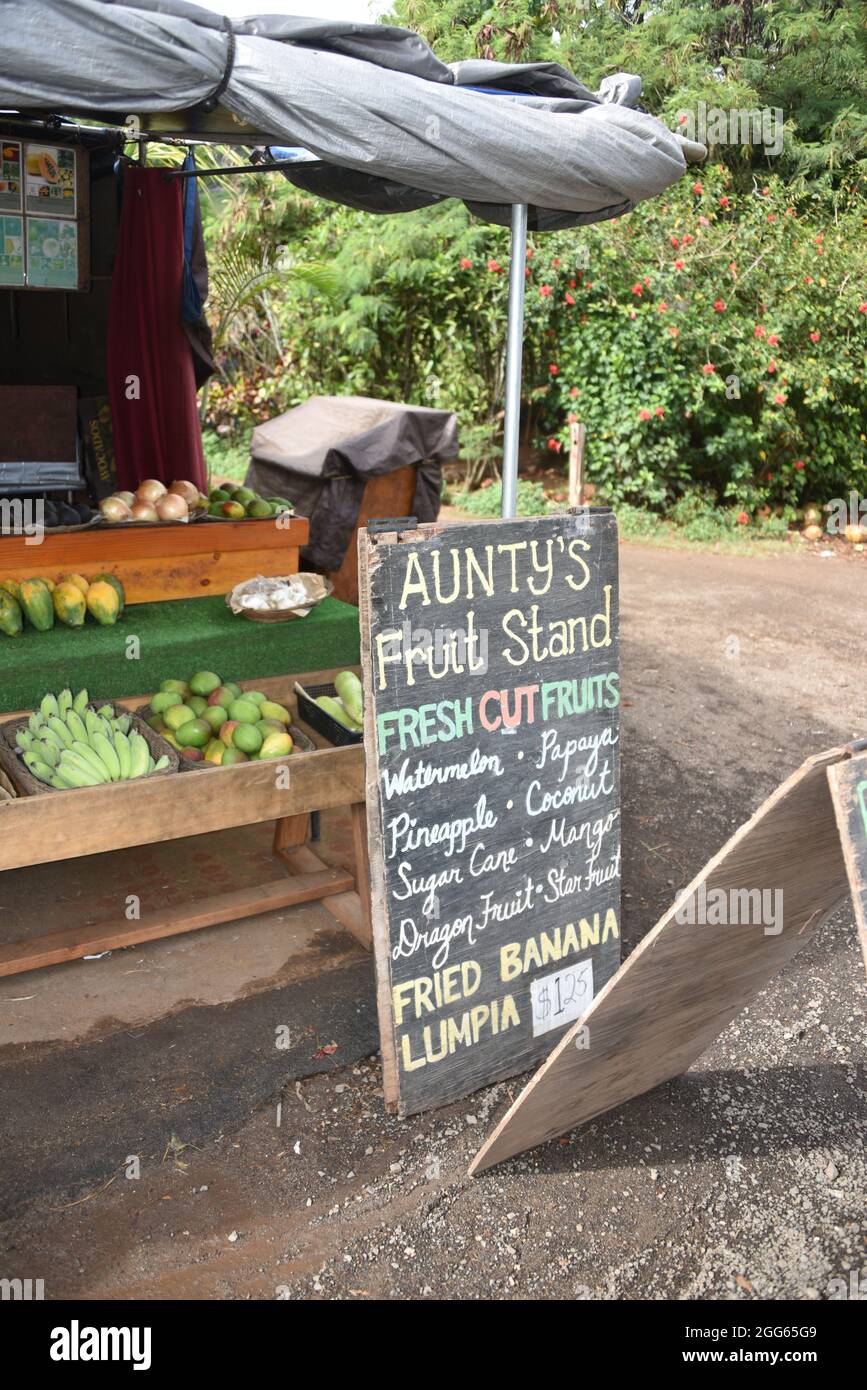 AUNTY'S
Fruit Stand
FRESH CUT FRUITS
Watermelon • Papaya
Pineapple • Coconut
Sugar Cane • Mango
Dragon Fruit • Star Fruit
FRIED BANANA
LUMPIA $1.25
alamy
Image ID: 2GG65G9
www.alamy.com